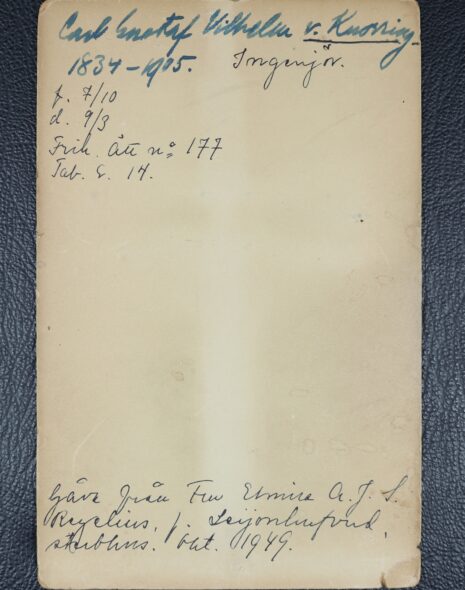 Carl Gustaf Vilhelm v. Knorring
1834-1905. Ingenjör.
f. 7/10
d. 9/3
Frih. Ätt nº 177
Tab. 14.
Gåva från Fru Elmire A. J. S.
f. Leijonhufvud,
Okt. 1949.